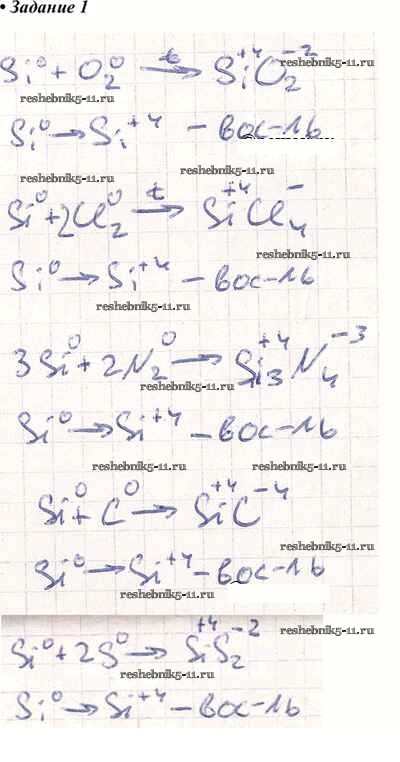 • Задание 1
reshebnik5-11.ru
Si⁰ + O₂⁰ —t→ Si⁺⁴O₂⁻²
reshebnik5-11.ru
Si⁰ → Si⁺⁴ – вос-ль
reshebnik5-11.ru reshebnik5-11.ru
Si⁰ + 2Cl₂⁰ —t→ Si⁺⁴Cl₄⁻
reshebnik5-11.ru
Si⁰ → Si⁺⁴ – вос-ль
reshebnik5-11.ru
3Si⁰ + 2N₂⁰ → Si₃⁺⁴N₄⁻³
reshebnik5-11.ru
Si⁰ → Si⁺⁴ – вос-ль
reshebnik5-11.ru reshebnik5-11.ru
Si⁰ + C⁰ → Si⁺⁴C⁻⁴
reshebnik5-11.ru
Si⁰ → Si⁺⁴ – вос-ль
reshebnik5-11.ru
reshebnik5-11.ru
Si⁰ + 2S⁰ → Si⁺⁴S₂⁻²
reshebnik5-11.ru
Si⁰ → Si⁺⁴ – вос-ль